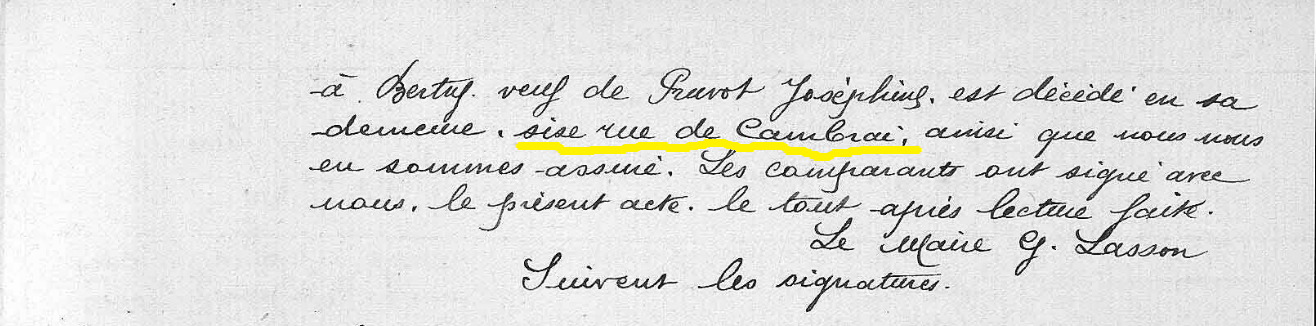 à Bertry. veuf de Pruvot Joséphine. est décédé en sa
demeure, sise rue de Cambrai, ainsi que nous nous
en sommes assuré. Les comparants ont signé avec
nous, le présent acte. le tout après lecture faite.
Le Maire G. Lasson
Suivent les signatures.